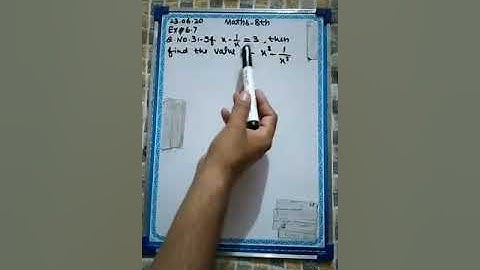 23.06.20 Maths-8th
Ex# 6.7
Q.No.3:- If x - 1/x = 3, then
find the value x³ - 1/x³